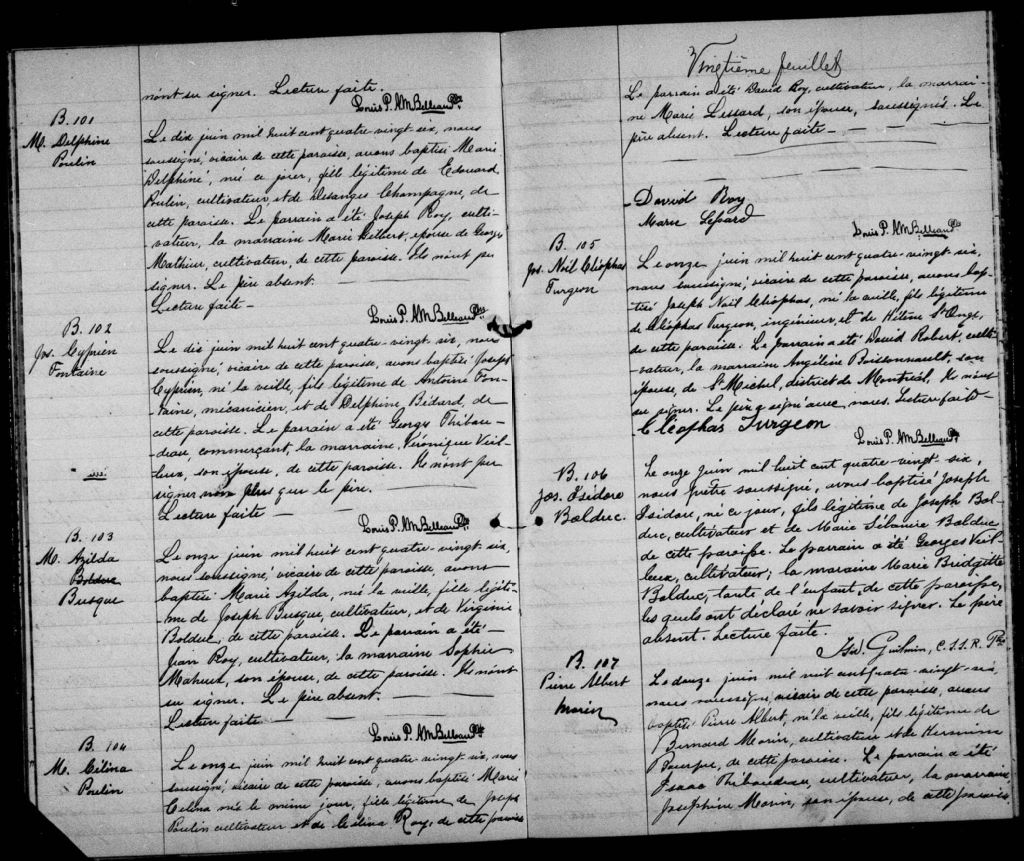 n'ont su signer. Lecture faite.
Louis P. N M Belleau Ptre
B. 101
M. Delphine
Poulin
Le dix juin mil huit cent quatre-vingt six, nous
soussigné, vicaire de cette paroisse, avons baptisé Marie
Delphine, né ce jour, fille légitime de Edouard
Poulin, cultivateur, et de Desanges Champagne, de
cette paroisse. Le parrain a été Joseph Roy, culti-
vateur, la marraine Marie Hebert, épouse de George
Mathieu, cultivateur, de cette paroisse. Ils n'ont pu
signer. Le père absent.
Lecture faite -
Louis P. N M Belleau Ptre
B. 102
Jos. Cyprien
Fontaine
Le dix juin mil huit cent quatre-vingt six, nous
soussigné, vicaire de cette paroisse, avons baptisé Joseph
Cyprien, né la veille, fils légitime de Antoine Fon-
-taine, mécanicien, et de Delphine Bédard, de
cette paroisse. Le parrain a été George Thibau-
deau, commerçant, la marraine, Véronique Veil-
leux, son épouse, de cette paroisse. Ils n'ont pu
signer non plus que le père.
Lecture faite -
Louis P. N M Belleau Ptre
B. 103
M. Azilda
Bolduc
Busque
Le onze juin mil huit cent quatre-vingt-six,
nous soussigné, vicaire de cette paroisse, avons
baptisé Marie Azilda, né la veille, fille légiti-
me de Joseph Busque, cultivateur, et de Virginie
Bolduc, de cette paroisse. Le parrain a été
Jean Roy, cultivateur, la marraine Sophie
Maheux, son épouse, de cette paroisse. Ils n'ont
su signer. Le père absent.
Lecture faite
Louis P. N M Belleau Ptre
B. 104
M. Célina
Poulin
Le onze juin mil huit cent quatre-vingt six, nous
soussigné, vicaire de cette paroisse, avons baptisé Marie
Célina née le même jour, fille légitime de Joseph
Poulin cultivateur et de Célina Roy, de cette paroisse
Vingtième feuillet
Le parrain a été David Roy, cultivateur, la marrai-
ne Marie Lessard, son épouse, soussignés. Le
père absent. Lecture faite -
David Roy
Marie Lessard
Louis P. N M Belleau Ptre
B. 105
Jos. Noël Cléophas
Turgeon
Le onze juin mil huit cent quatre-vingt six,
nous soussigné, vicaire de cette paroisse, avons bap-
tisé Joseph Noël Cléophas, né la veille, fils légitime
de Cléophas Turgeon, ingénieur, et de Hélène St Onge,
de cette paroisse. Le parrain a été David Robert, culti-
-vateur, la marraine Angéline Boissonnault, son
épouse, de St Michel, district de Montréal, Ils n'ont
su signer. Le père a signé avec nous. Lecture faite -
Cléophas Turgeon
Louis P. N M Belleau Ptre
B. 106
Jos. Isidore
Bolduc.
Le onze juin mil huit cent quatre-vingt-six,
nous prêtre soussigné, avons baptisé Joseph
Isidore, né ce jour, fils légitime de Joseph Bol-
duc, cultivateur et de Marie Bolduc
de cette paroisse. Le parrain a été Georges Veil-
leux, cultivateur; la maraine Marie Budgitte
Bolduc, tante de l'enfant, de cette paroisse,
les quels ont déclaré ne savoir signer. Le père
absent. Lecture faite.
Guilmin, C.SS.R. Ptre
B. 107
Pierre Albert
Morin
Le douze juin mil huit cent quatre-vingt-six
nous soussigné, vicaire de cette paroisse, avons
baptisé Pierre Albert, né la veille, fils légitime de
Bernard Morin, cultivateur et de Hermine
de cette paroisse. Le parrain a été
Isaac Thibaudeau, cultivateur, la marraine
Joséphine Morin, son épouse, de cette paroisse